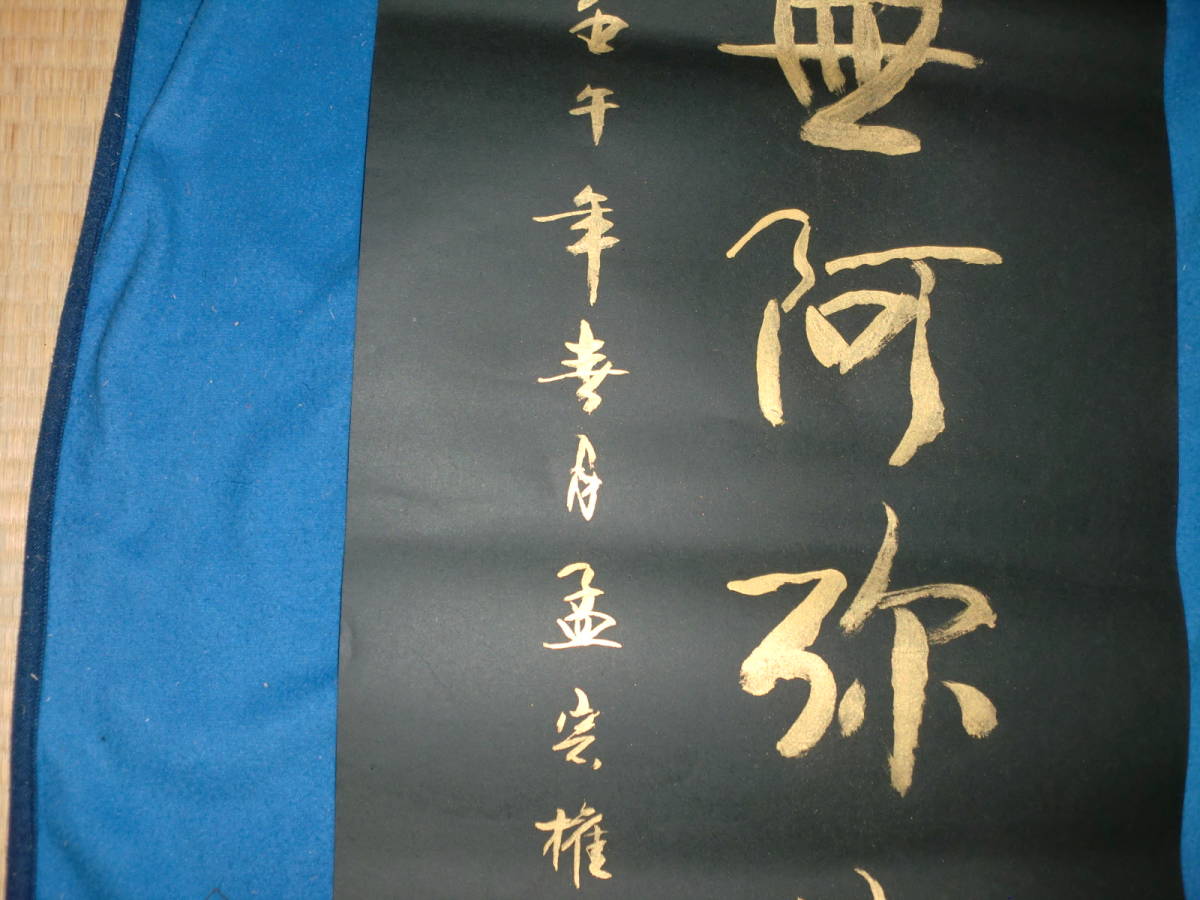 無阿弥
午年春月孟宪権